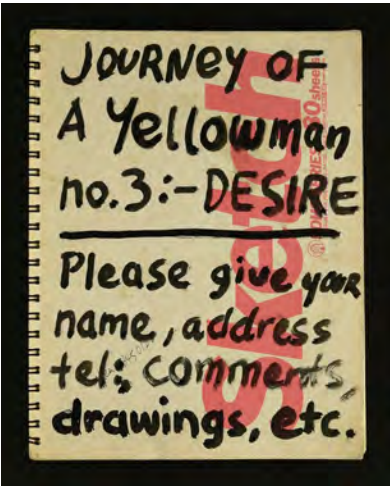 JOURNEY OF
A Yellowman
no.3:-DESIRE
Please give your
name, address
tel:, comments,
drawings, etc.
Sketch
sheets